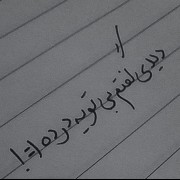 دیدی گفتم بی تو یه درده!؟!